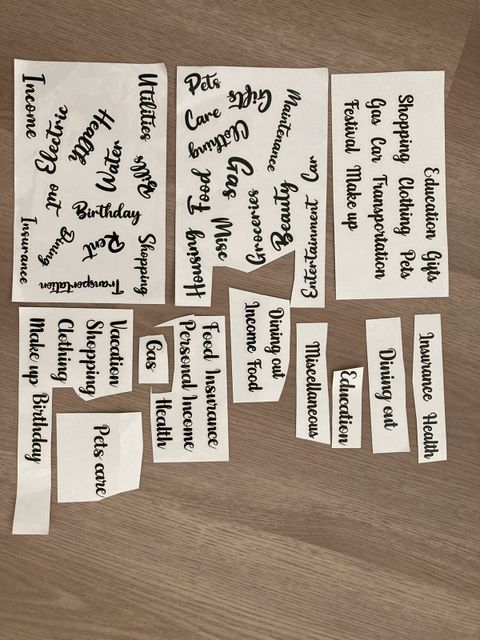 Education Gifts
Shopping Clothing Pets
Gas Car Transportation
Festival Make up
Insurance Health
Dining out
Education
Miscellaneous
Maintenance Car
Entertainment
Gifts
Beauty
Pets
Care
Clothing
Gas
Groceries
Food
Misc
Housing
Dining out
Income Food
Food Insurance
Personal Income
Health
Gas
Utilities
Bills
Shopping
Water
Health
Birthday
Rent
Transportation
Electric
Dining
out
Income
Insurance
Vacation
Shopping
Clothing
Make up Birthday
Pets care